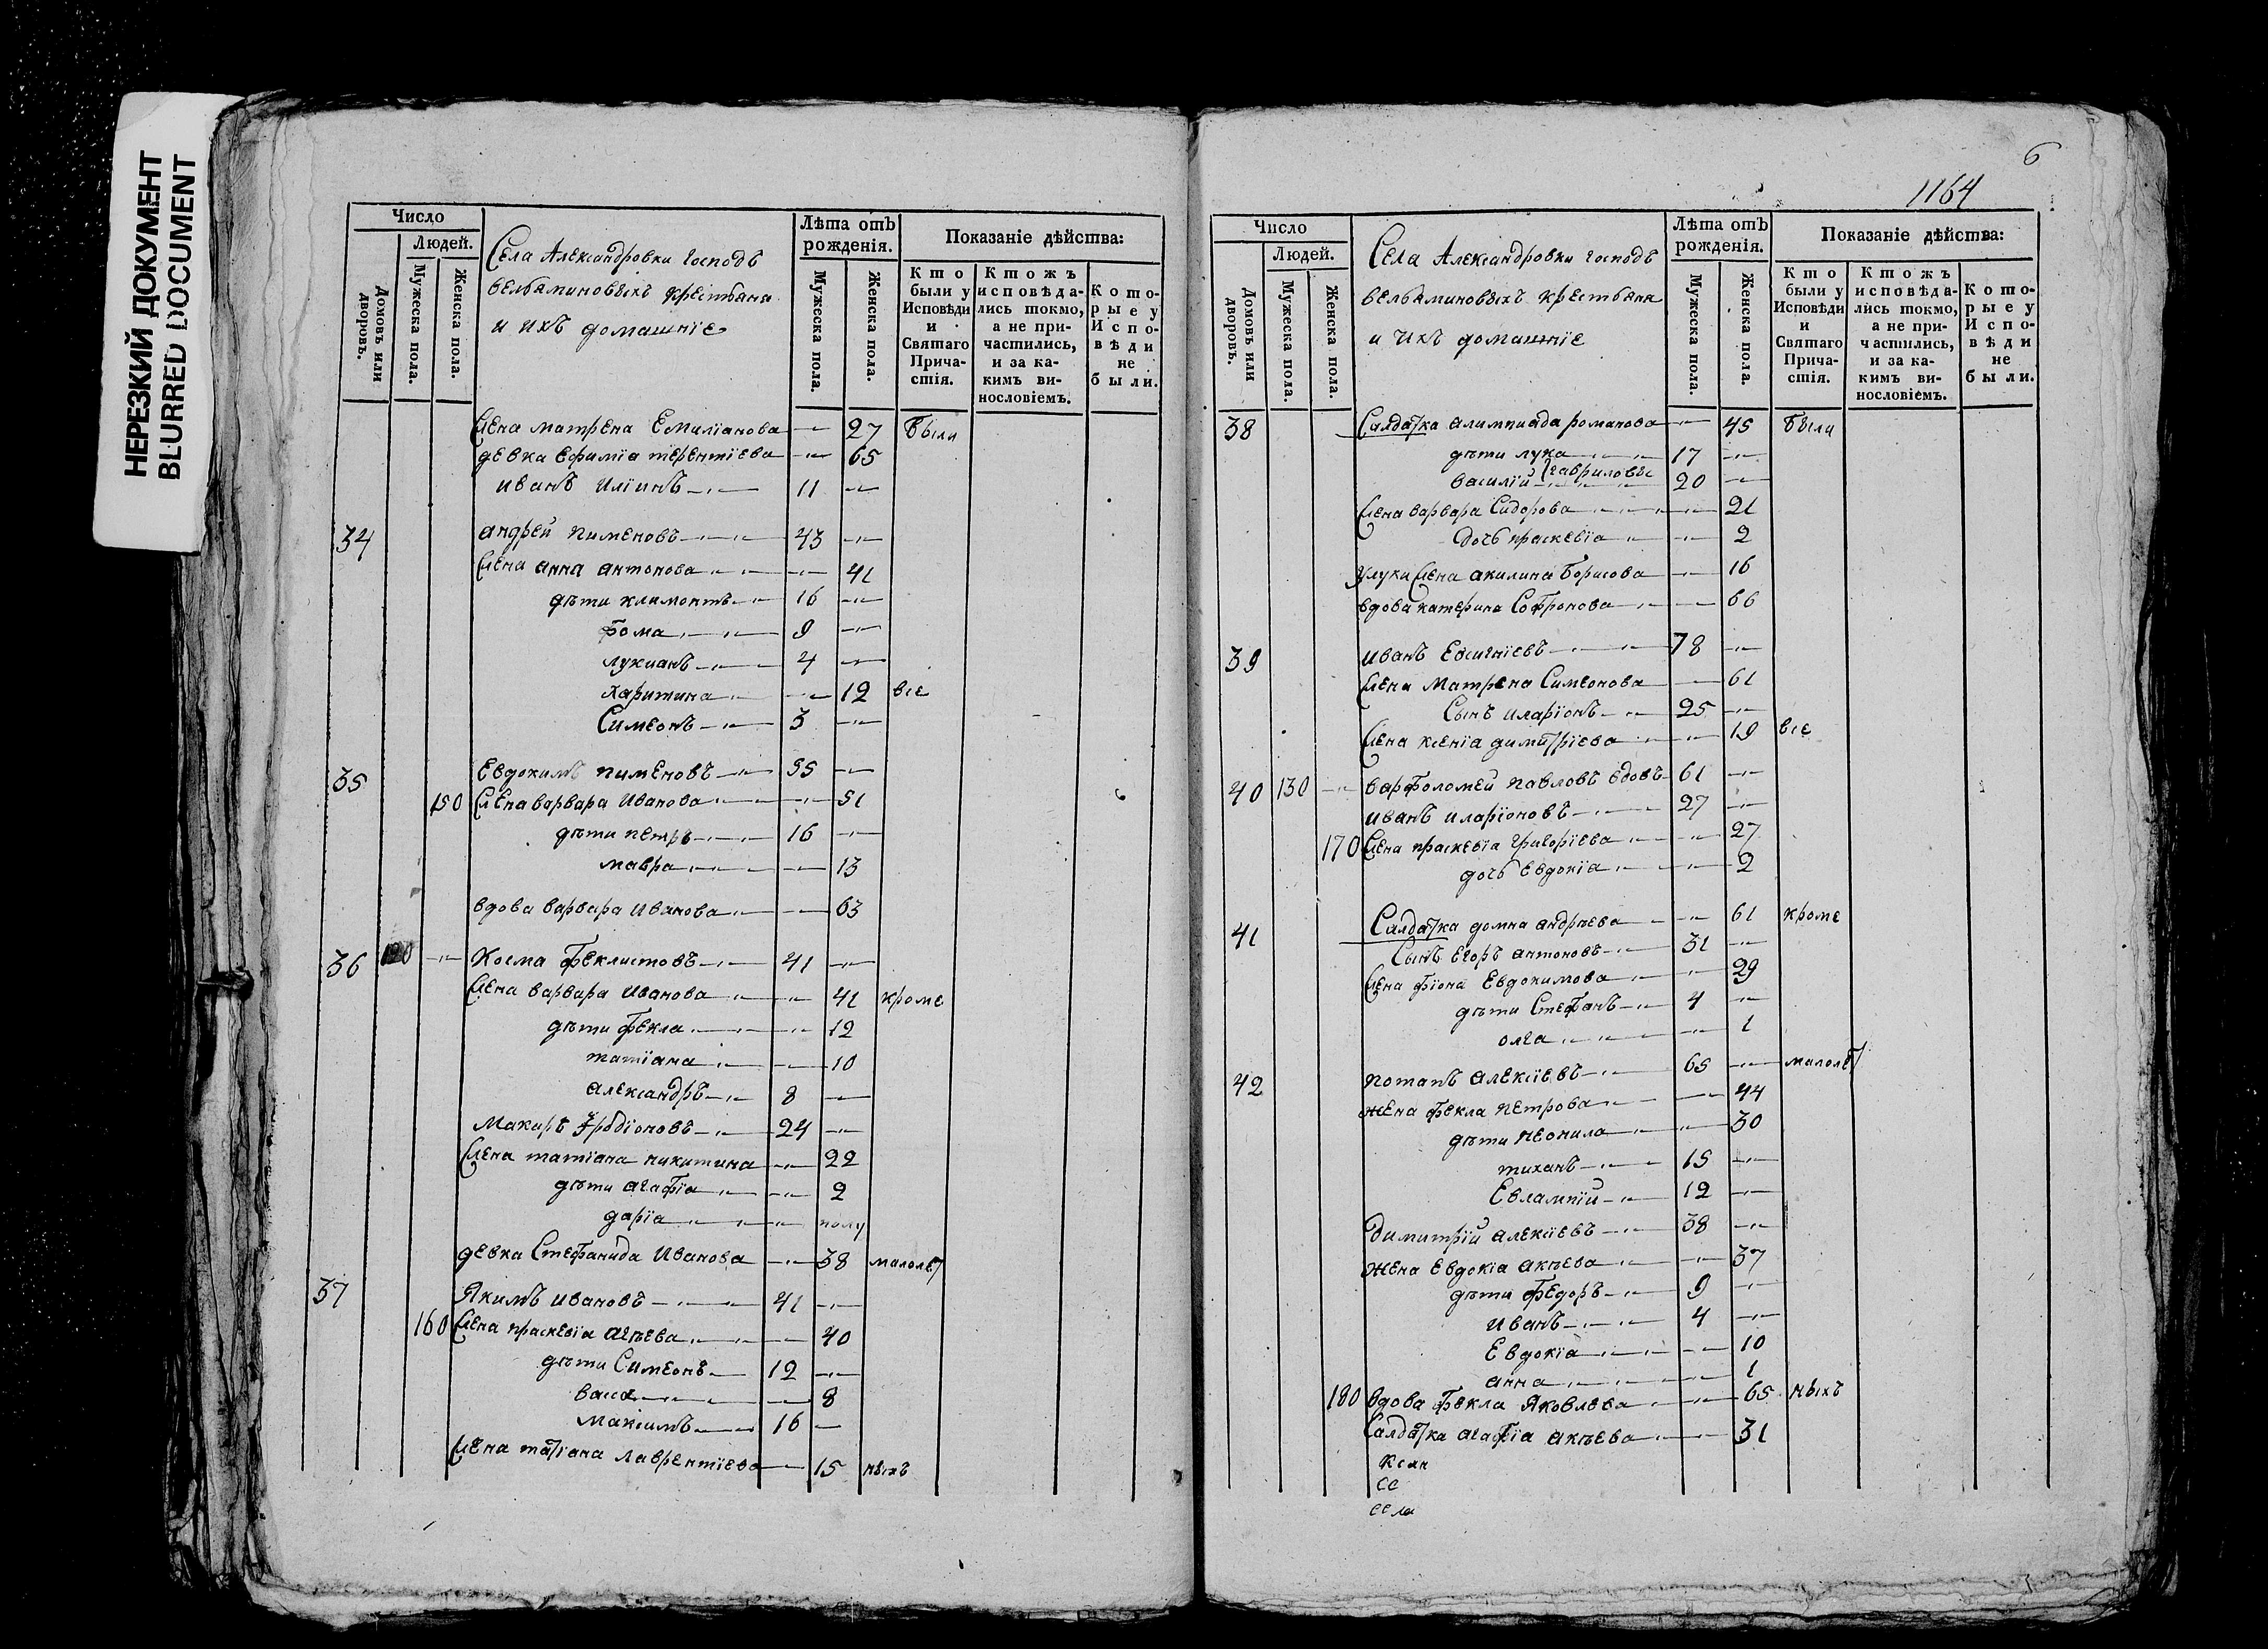 НЕРЕЗКИЙ ДОКУМЕНТ
BLURRED DOCUMENT
Число
Людей.
Домовъ или дворовъ.
Мужеска пола.
Женска пола.
Села Александровки господъ
вельяминовыхъ крестьяна
и ихъ домашнїе
Лѣта отъ рожденія.
Мужеска пола.
Женска пола.
Показаніе дѣйства:
Кто были у Исповѣди и Святаго Прича-стія.
Ктожъ исповѣда-лись токмо, а не при-частились, и за ка-кимъ ви-нословіемъ.
Кото-рые у Испо-вѣди не были.
жена матрена Емилїанова 27 были
девка ефимїа терентїева 65
иванъ илїинъ 11
34 андрей пименовъ 43
жена анна антонова 41
дѣти климонтъ 16
фома 9
лукианъ 4
харитина 12 все
Симеонъ 3
35 Евдокимъ пименовъ 55
150 жена варвара иванова 51
дѣти петръ 16
мавра 13
вдова варвара иванова 63
36 120 Косма феклистовъ 41
жена варвара иванова 41 кроме
дѣти фекла 12
татїана 10
александръ 8
Макаръ родїоновъ 24
жена татїана никитина 22
дѣти агафїа 2
дарїа полу
девка Стефанида иванова 38 малолет
37 Якимъ ивановъ 41
160 жена праскевїа агѣева 40
дѣти Симеонъ 12
васса 8
максимъ 16
жена татїана лаврентїева 15 ныхъ
6
1164
Число
Людей.
Домовъ или дворовъ.
Мужеска пола.
Женска пола.
Села Александровки господъ
вельяминовыхъ крестьяна
и ихъ домашнїе
Лѣта отъ рожденія.
Мужеска пола.
Женска пола.
Показаніе дѣйства:
Кто были у Исповѣди и Святаго Прича-стія.
Ктожъ исповѣда-лись токмо, а не при-частились, и за ка-кимъ ви-нословіемъ.
Кото-рые у Испо-вѣди не были.
38 Салдатка алимпиада романова 45 были
дѣти лука 17
василїй гавриловы 20
жена варвара Сидорова 21
дочь праскевїа 2
у луки жена акилина борисова 16
вдова катерина Софронова 66
39 иванъ Евсигнїевъ 78
жена Матрена Симеонова 61
Сынъ иларїонъ 25
жена ксенїа димитрїева 19 все
40 130 варфоломей павловъ вдовъ 61
иванъ иларїоновъ 27
170 жена праскевїа григорїева 27
дочь евдокїа 2
41 Салдатка домна андрѣева 61 кроме
Сынъ егоръ антоновъ 31
жена фїона Евдокимова 29
дѣти Стефанъ 4
олга 1
42 потапъ алексїевъ 65 малолет
жена фекла петрова 44
дѣти неонила 30
тиханъ 15
Евлампїй 12
димитрїй алексїевъ 38
жена евдокїа акѣева 37
дѣти федоръ 9
иванъ 4
Евдокїа 10
анна 1
180 вдова фекла Яковлева 65 ныхъ
Салдатка агафїа акѣева 31
ее